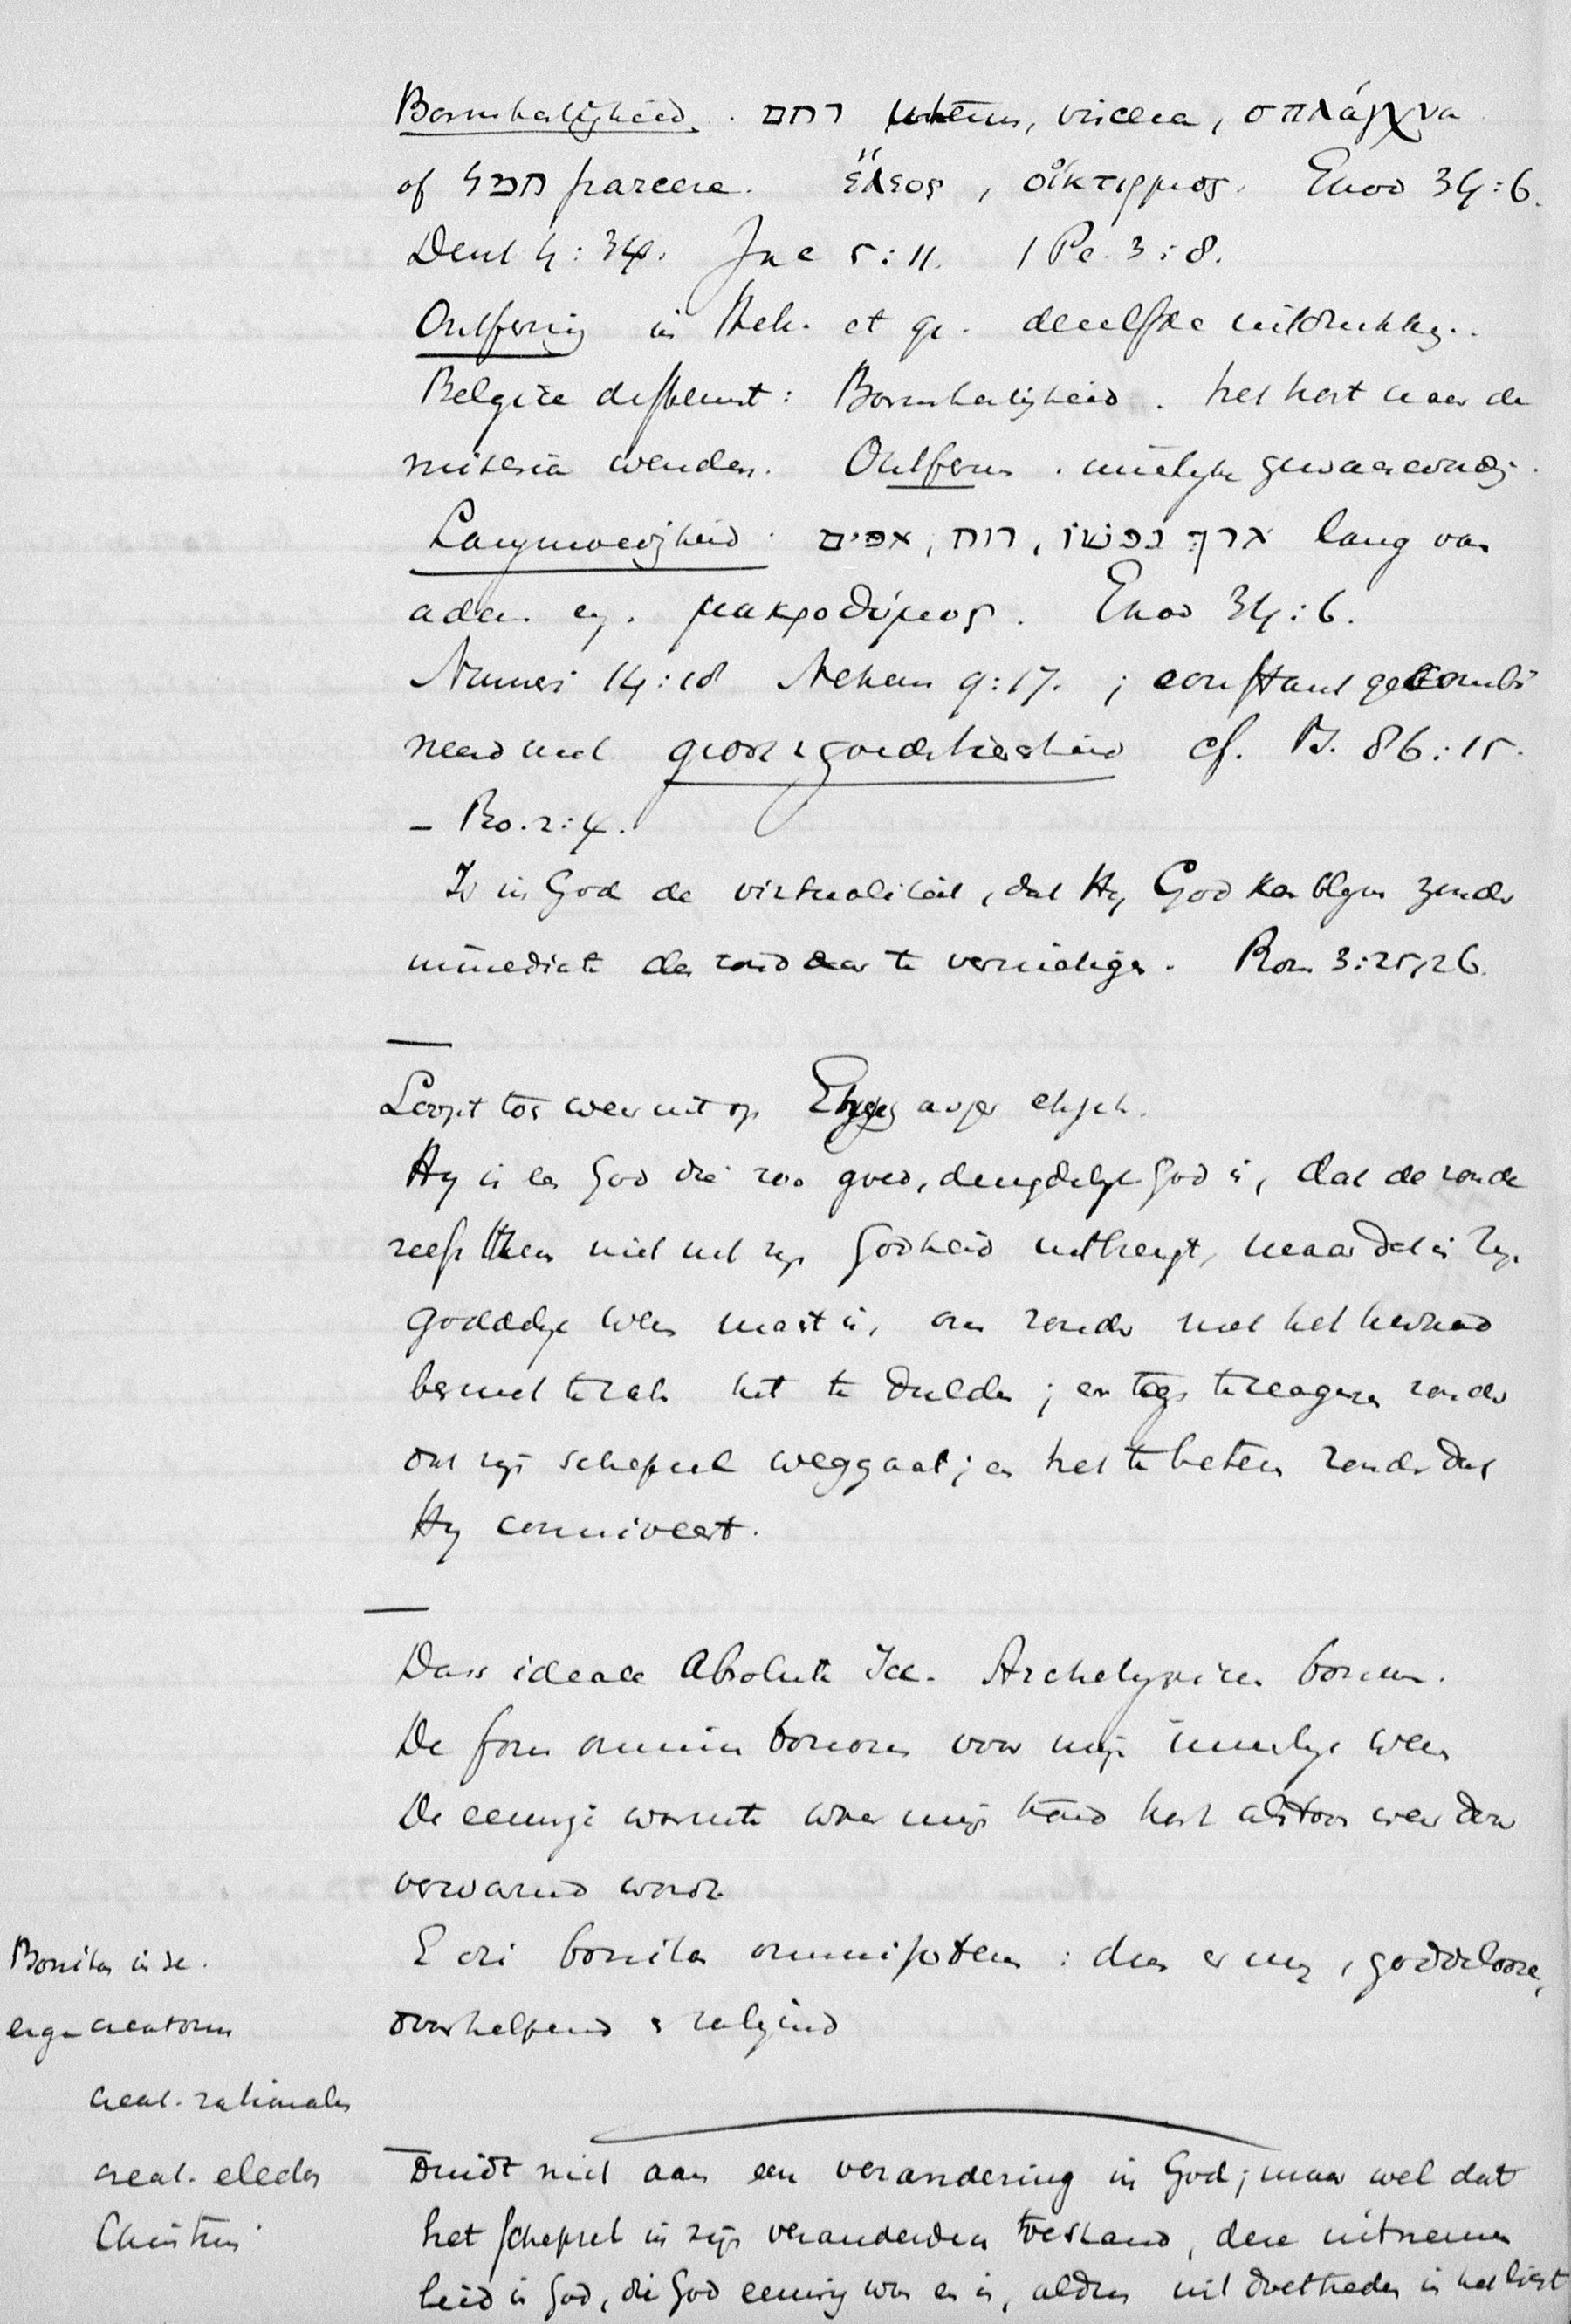 Barmhartigheid. רחם uterus, viscera, σπλάγχνα
of חמל parcere. ἔλεος, οἴκτιρμος. Exod 34:6.
Deut 4:31. Jac 5:11. 1 Pe. 3:8.
Ontferming in Heb. et gr. dezelfde uitdrukking.
Belgice differunt: Barmhartigheid. het hart naar de
miseria wenden. Ontferm. innerlijke
Langmoedigheid. ארך נפש, רוח, אפים lang van
adem. μακροθύμος. Exod 34:6.
Numeri 14:18 Nehem 9:17. ; constant gecombi
neerd met groot v goedertierenheid cf. Ps. 86:15.
– Ro. 2:4.
Is in God de virtualiteit, dat Hij God kan blijven zonder
immediate den zondaar te vernietigen. Rom 3:25,26.
Loopt toe weer uit op Ehjeh asjer ehjeh.
Hij is een God die zoo goed, deugdelijk God is, dat de zonde
zelfs Hem niet uit zijn Godheid uitbrengt, maar dat in zijn
goddelijk wezen macht is, om zonder met het kwaad
besmet te rak het te dulden; en te reageren zonder
dat zijn schepsel weggaat; en het te beteren zonder dat
Hij conniveert.
Dass ideale Absolute Ich. Archetypicum bonum.
De fons omnium bonorum voor mijn innerlijk wezen
De eenige warmte waar mijn koud hart altoos weer door
verwarmd wordt
E dei bonitas omnipotens: dus er mij, goddelooze,
doorhelpend & zaligend
Bonitas in se.
erga creaturam
creat. rationales
creat. electos
Christum
Duidt niet aan een verandering in God; maar wel dat
het schepsel in zijn veranderden toestand, deze uitnemen
heid in God, die God eeuwig was en is, aldus uit doet treden in het licht